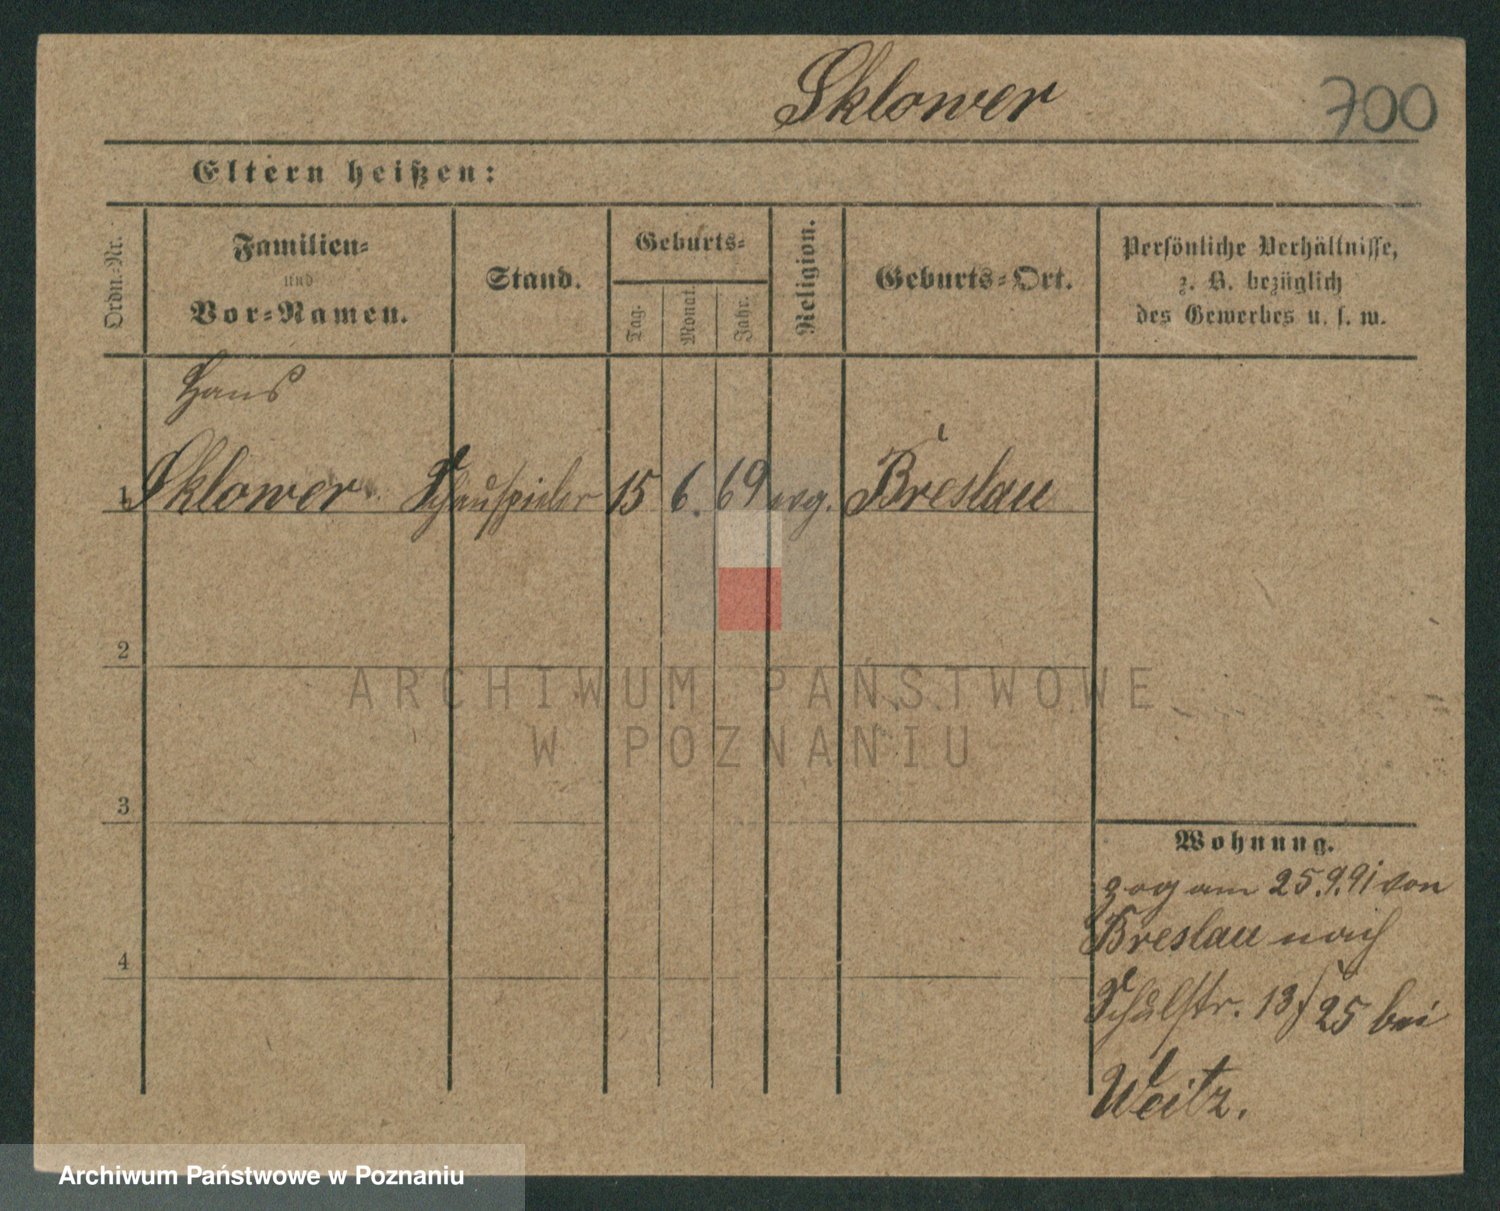 Sklower
700
Eltern heißen:
Ordn.-Nr.
Familien-
und
Vor-Namen.
Stand.
Geburts-
Tag.
Monat.
Jahr.
Religion.
Geburts-Ort.
Persönliche Verhältnisse,
z. B. bezüglich
des Gewerbes u. s. w.
Hans
1 Sklower Schauspieler 15 6. 69 evg. Breslau
2
ARCHIWUM PAŃSTWOWE
W POZNANIU
3
Wohnung.
zog am 25.9.91 von
Breslau nach
4
Schulstr. 13/25 bei
Weitz.
Archiwum Państwowe w Poznaniu